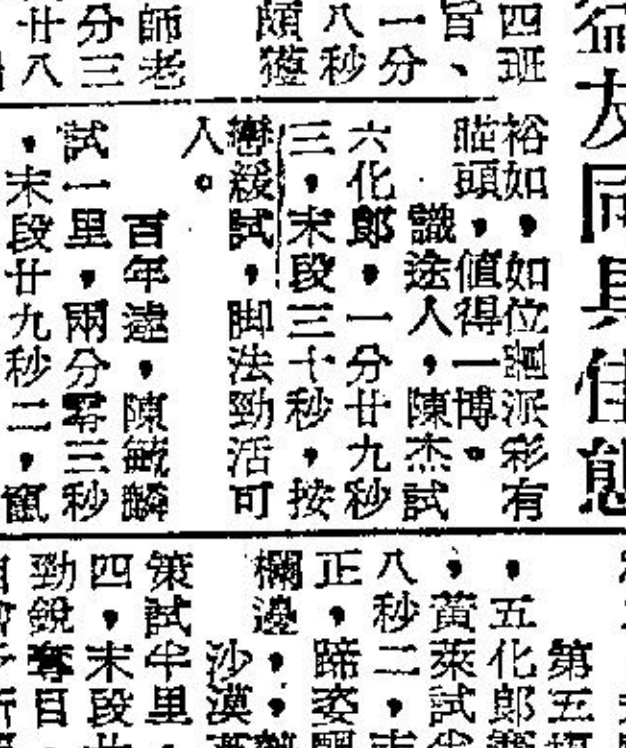 益友同具佳態
四班
旨、
一分
八秒
頗獲
師老
分三
廿八
裕如，如位列派彩有
瞄頭，值得一博。
識途人，陳杰試
六化郎，一分廿九秒
三，末段三十秒，按
轡緩試，脚法勁活可
人。
百年達，陳毓麟
試一里，兩分零三秒
，末段廿九秒二，竄
第五
，五化郎
，黃萊試
八秒二，
正，蹄姿
欄邊，
沙漠
策試半里
四，末段
勁銳奪目